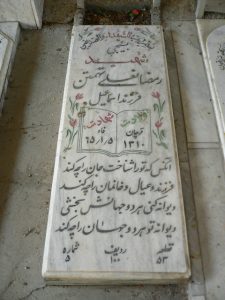 شهید
رمضانعلی تهمتن
فرزند اسماعیل
ولادت
شهادت
۱۳۱۰
۶۵/۱/۵
آنکس که تو را شناخت جان را چه کند
فرزند و عیال و خانمان را چه کند
دیوانه کنی هر دو جهانش بخشی
دیوانه تو هر دو جهان را چه کند
قطعه ردیف شماره
۵۳ ۱۰۰ ۵